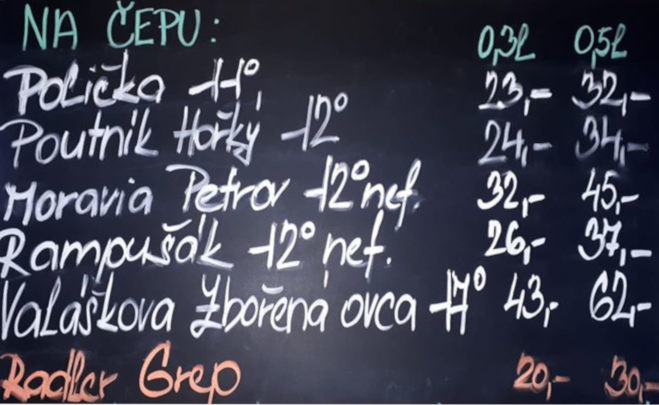 NA ČEPU: 0,3l 0,5l
Polička 11° 23,- 32,-
Poutník Hořký 12° 24,- 34,-
Moravia Petrov 12° nef. 32,- 45,-
Rampušák 12° nef. 26,- 37,-
Valáškova Zbořená ovca 17° 43,- 62,-
Radler Grep 20,- 30,-